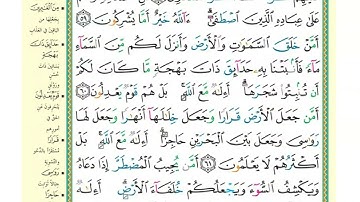 عَلَىٰ عِبَادِهِ ٱلَّذِينَ ٱصْطَفَىٰٓ ۗ ءَآللَّهُ خَيْرٌ أَمَّا يُشْرِكُونَ ٥٩
أَمَّنْ خَلَقَ ٱلسَّمَٰوَٰتِ وَٱلْأَرْضَ وَأَنزَلَ لَكُم مِّنَ ٱلسَّمَآءِ
مَآءً فَأَنۢبَتْنَا بِهِۦ حَدَآئِقَ ذَاتَ بَهْجَةٍ مَّا كَانَ لَكُمْ
أَن تُنۢبِتُوا۟ شَجَرَهَآ ۗ أَءِلَٰهٌ مَّعَ ٱللَّهِ ۚ بَلْ هُمْ قَوْمٌ يَعْدِلُونَ ٦٠
أَمَّن جَعَلَ ٱلْأَرْضَ قَرَارًا وَجَعَلَ خِلَٰلَهَآ أَنْهَٰرًا وَجَعَلَ لَهَا
رَوَٰسِىَ وَجَعَلَ بَيْنَ ٱلْبَحْرَيْنِ حَاجِزًا ۗ أَءِلَٰهٌ مَّعَ ٱللَّهِ ۚ بَلْ
أَكْثَرُهُمْ لَا يَعْلَمُونَ ٦١ أَمَّن يُجِيبُ ٱلْمُضْطَرَّ إِذَا دَعَاهُ
وَيَكْشِفُ ٱلسُّوٓءَ وَيَجْعَلُكُمْ خُلَفَآءَ ٱلْأَرْضِ ۗ أَءِلَٰهٌ
مِنَ الْغَابِرِينَ
بِجَعْلِهَا مِنَ
الباقين في العذاب
حَدَائِقَ ذَاتَ
بَهْجَةٍ
بساتين ذات
قَرَارًا
حَاجِزًا